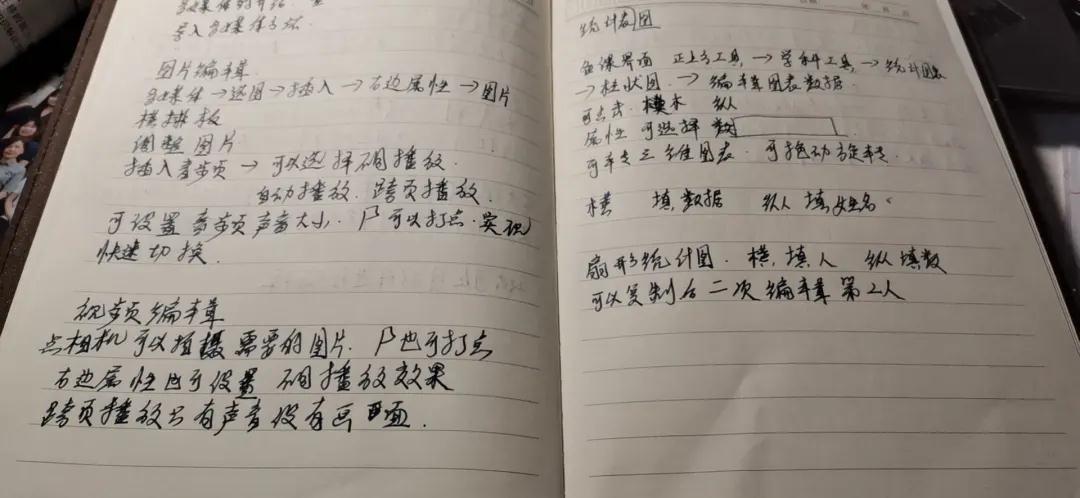 多媒体的介绍
导入多媒体
图片编辑
多媒体→选图→插入→右边属性→图片
模排板
调整图片
插入音频→可以选择 播放.
自动播放. 跨页播放.
可设置音频声音大小. 可以打点. 实现
快速切换.
视频编辑
点相机可以拍摄需要的图片. 也可打点
右边属性也可设置 播放效果
跨页播放只有声音没有画面.
统计图
备课界面 正上方工具,→学科工具,→统计图表
→柱状图.→编辑图表数据.
可点击 横 纵
属性 可选择 数
可转三维图表. 可拖动旋转.
横 填数据 纵 填姓名.
扇形统计图. 横,填人 纵填数
可以复制后二次编辑第2人